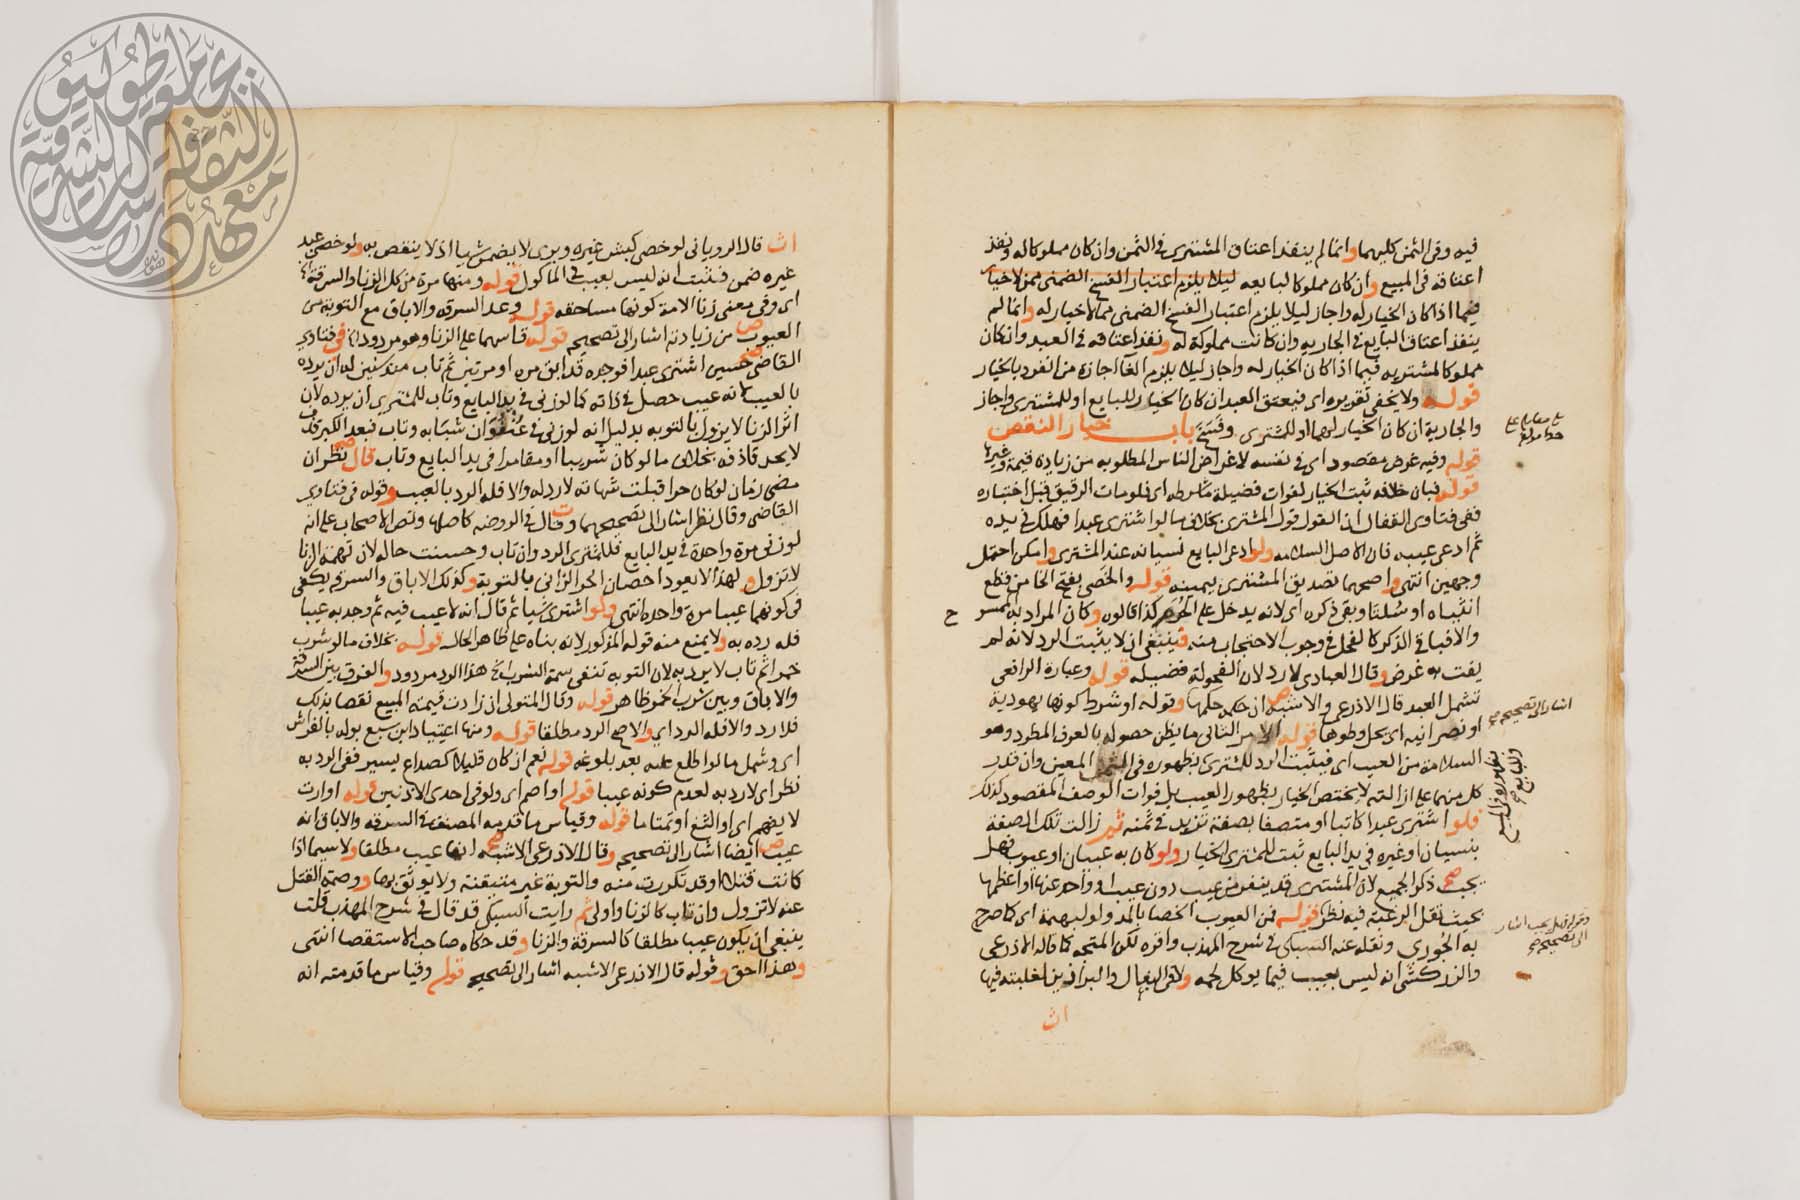 فيه وفى الثمن كليهما وانما لم ينفذ اعتاق المشترى فى الثمن وان كان مملوكا له ونفذ
اعتاقه فى المبيع وان كان مملوكا لبايعه ليلا يلزم اعتبار الفسخ الضمنى ممن لا خيار
فيما اذا كان الخيار له واجاز ليلا يلزم اعتبار الفسخ الضمنى مما لا خيار له وانما لم
ينفذ اعتاق البايع فى الجاريه وان كانت مملوكة له ونفذ اعتاقه فى العبد وان كان
مملوكا لمشتريه فيما اذا كان الخيار له واجاز ليلا يلزم الغا اجازة من انفرد بالخيار
قوله ولا يخفى تقريره اى فيعتق العبد ان كان الخيار للبايع او للمشترى واجاز
والجارية ان كان الخيار لهما او للمشترى وفسخ باب خيار النقص
قوله وفيه غرض مقصود اى فى نفسه لاغراض الناس المطلوبه من زيادة قيمة وغيرها
قوله فبان خلافه ثبت الخيار لفوات فضيلة ما شرطه اى فلو مات الرقيق قبل اختباره
ففى فتاوى القفال ان القول قول المشترى بخلاف ما لو اشترى عبدا فهلك فى يده
ثم ادعى عيبه فان الاصل السلامه ولو ادعى البايع نسيانه عند المشترى وامكن احتمل
وجهين انتهى واصحهما تصديق المشترى بيمينه قوله والخصى بفتح الخا من قطع
انثياه او سلتا وبقى ذكره اى لانه يدخل على الحرم كذا قالوه وكان المراد به الممسوح
والا فباقى الذكر كالفحل فى وجوب الاحتجاب منه فينبغى ان لا يثبت الرد لانه لم
يفت به غرض وقال العبادى لا رد لان الفحولة فضيله قوله وعبارة الرافعى
تشمل العبد قال الاذرعى والاشبه ان حكمه حكمها وقوله او شرط كونها يهودية
او نصرانيه اى يحل وطوها قوله الامر الثانى ما يظن حصوله بالعرف المطرد وهو
السلامة من العيب اى فيثبت الرد للمشترى بظهوره فى المعين وان قدر
كل منهما على ازالته لا يختص الخيار بظهور العيب بل فوات الوصف المقصود كذلك
فلو اشترى عبدا كاتبا او متصفا بصفة تزيد فى ثمنه ثم زالت تلك الصفة
بنسيان او غيره فى يد البايع ثبت للمشترى الخيار ولو كان به عيبان او عيوب فهل
يجب ذكر الجميع لان المشترى قد ينفر من عيب دون عيب او واحد عنها او اعظمها
بحيث تقل الرغبة فيه نظر قوله فمن العيوب الخصا بالمد ولو لبهيمة اى كما صرح
به الجورى ونقله عنه السبكى فى شرح المهذب واقره لكن المتجه كما قاله الاذرعى
والزركشى انه ليس بعيب فيما يوكل لحمه ولا فى البغال والبراذين لغلبته فيها
اث
اشار الى تصحيحه
اث قال الرويانى لو خصى كبش غيره وبرى لا يضمن شيا اذ لا ينقص به ولو خصى عبد
غيره ضمن فثبت انه ليس بعيب فى الماكول قوله ومنها مرة من كل الزنا والسرقة
اى وفى معنى زنا الامة كونها مساحقه قوله وعد السرقه والاباق مع التوبة من
العيوب من زيادته اشار الى تصحيحه قوله قاسهما على الزنا وهو مردود فى فتاوى
القاضى حسين اشترى عبدا فوجده قد ابق مره او مرتين ثم تاب منذ سنين له ان يرده
بالعيب لانه عيب حصل فى ذاته كما لو زنى فى يد البايع وتاب للمشترى ان يرده لان
اثر الزنا لا يزول بالتوبه بدليل انه لو زنى فى عنفوان شبابه وتاب فبعد الكبر قذف
لا يحد قاذفه بخلاف ما لو كان شريبا او مقامرا فى يد البايع وتاب قال نظر ان
مضى زمان لو كان حرا قبلت شهادته لا رد له والا فله الرد بالعيب وقوله فى فتاوى
القاضى وقال نظر اشار الى تصحيحهما وقال فى الروضه كاصلها ونص الاصحاب على انه
لو زنى مرة واحدة فى يد البايع فللمشترى الرد وان تاب وحسنت حاله لان تهمة الزنا
لا تزول ولهذا لا يعود احصان الحر الزانى بالتوبة وكذلك الاباق والسرقه يكفى
فى كونهما عيبا مرة واحده انتهى ولو اشترى شيا ثم قال انه لا عيب فيه ثم وجد به عيبا
فله رده به ولا يمنع منه قوله المذكور لانه بناه على ظاهر الحال قوله بخلاف ما لو شرب
خمرا ثم تاب لا يرد به لان التوبه تنفى سمة الشرب الخ هذا الرد مردود والفرق بين السرقه
والاباق وبين شرب الخمر ظاهر قوله وقال المتولى ان زادت قيمته المبيع نقصا بذلك
فلا رد والا فله الرد اى والاصح الرد مطلقا قوله ومنها اعتياد ابن سبع بوله بالفراش
اى وشمل ما لو اطلع عليه بعد بلوغه قوله نعم ان كان قليلا كصداع يسير ففى الرد به
نظر اى لا رد به لعدم كونه عيبا قوله او اصم اى ولو فى احدى الاذنين قوله او ارت
لا يفهم اى او الثغ او تمتاما قوله وقياس ما قدمه المصنف فى السرقه والاباق انه
عيب ايضا اشار الى تصحيحه وقال الاذرعى الاشبه انها عيب مطلقا ولا سيما اذا
كانت قتلا او قد تكررت منه والتوبة غير متيقنة ولا يوثق بها ووصمة القتل
عنه لا تزول وان تاب كالزنا واولى ثم رايت السبكى قد قال فى شرح المهذب قلت
ينبغى ان يكون عيبا مطلقا كالسرقة والزنا وقد حكاه صاحب الاستقصا انتهى
وهذا احق وقوله قال الاذرعى الاشبه اشار الى تصحيحه قوله وقياس ما قدمته انه